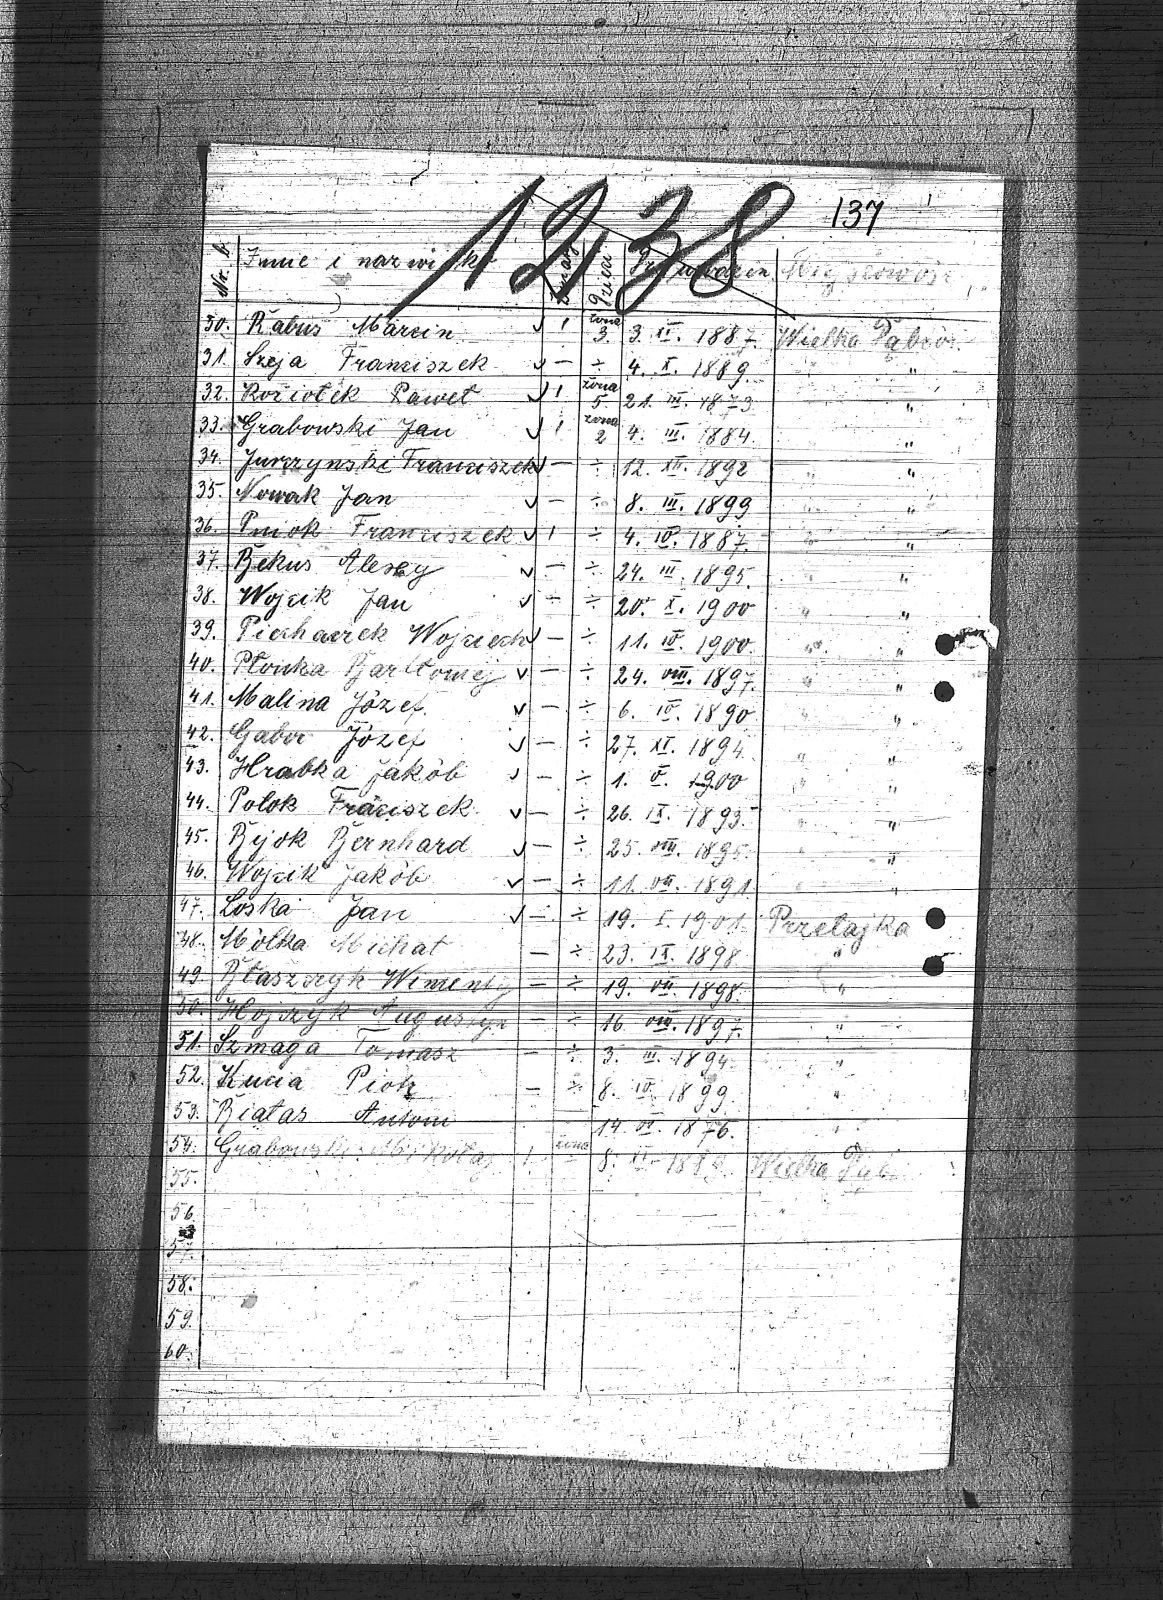 1238
137
Nr. Imię i nazwisko żona Dzieci Miejscowość
30. Kabus Marcin √ 1 żona 3. 3. XI. 1887. Wielka Dąbrów.
31. Szeja Franciszek √ — ÷ 4. X. 1889. "
32. Kożiołek Paweł √ 1 żona 5 21. III. 1873. "
33. Grabowski Jan √ 1 żona 2 4. III. 1884. "
34. Jurczynski Franciszek √ — ÷ 12. XII. 1892 "
35. Nowak Jan √ — ÷ 8. III. 1899 "
36. Pniok Franciszek √ 1 ÷ 4. IV. 1887. "
37. Bekus Alexy √ — ÷ 24. III. 1895. "
38. Wojcik Jan √ — ÷ 20. X. 1900 "
39. Piecharek Wojciech √ — ÷ 11. IV. 1900. "
40. Płonka Bartłomiej √ — ÷ 24. VIII. 1897. "
41. Malina Józef. √ — ÷ 6. IV. 1890 "
42. Gabor Józef √ — ÷ 27. XI. 1894. "
43. Hrabka Jakób √ — ÷ 1. V. 1900 "
44. Polok Fraciszek. √ — ÷ 26. IX. 1893. "
45. Bijok Bernhard √ — ÷ 25. VIII. 1895. "
46. Wojcik Jakób √ — ÷ 11. VII. 1891. "
47. Loska Jan √ — ÷ 19. I. 1901. Przełajka
48. Mólka Michał — ÷ 23. IX. 1898 "
49. Błaszczyk — ÷ 19. VII. 1898. "
50. Hojczyk Augustyn — ÷ 16. VIII. 1897. "
51. Szmaga Tomasz — ÷ 3. III. 1894. "
52. Kucia Piotr — ÷ 8. IV. 1899 "
53. Białas Antoni 14. VI. 1876. "
54. Grabowski Mikołaj 1 żona 8. XI. Wielka Dąb.
55.
56. "
57.
58.
59.
60.